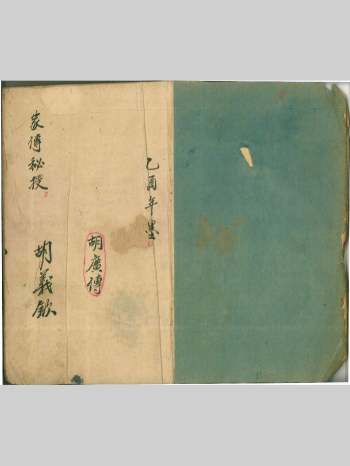 乙酉年墨
胡廣傳
家傳秘授
胡義欽